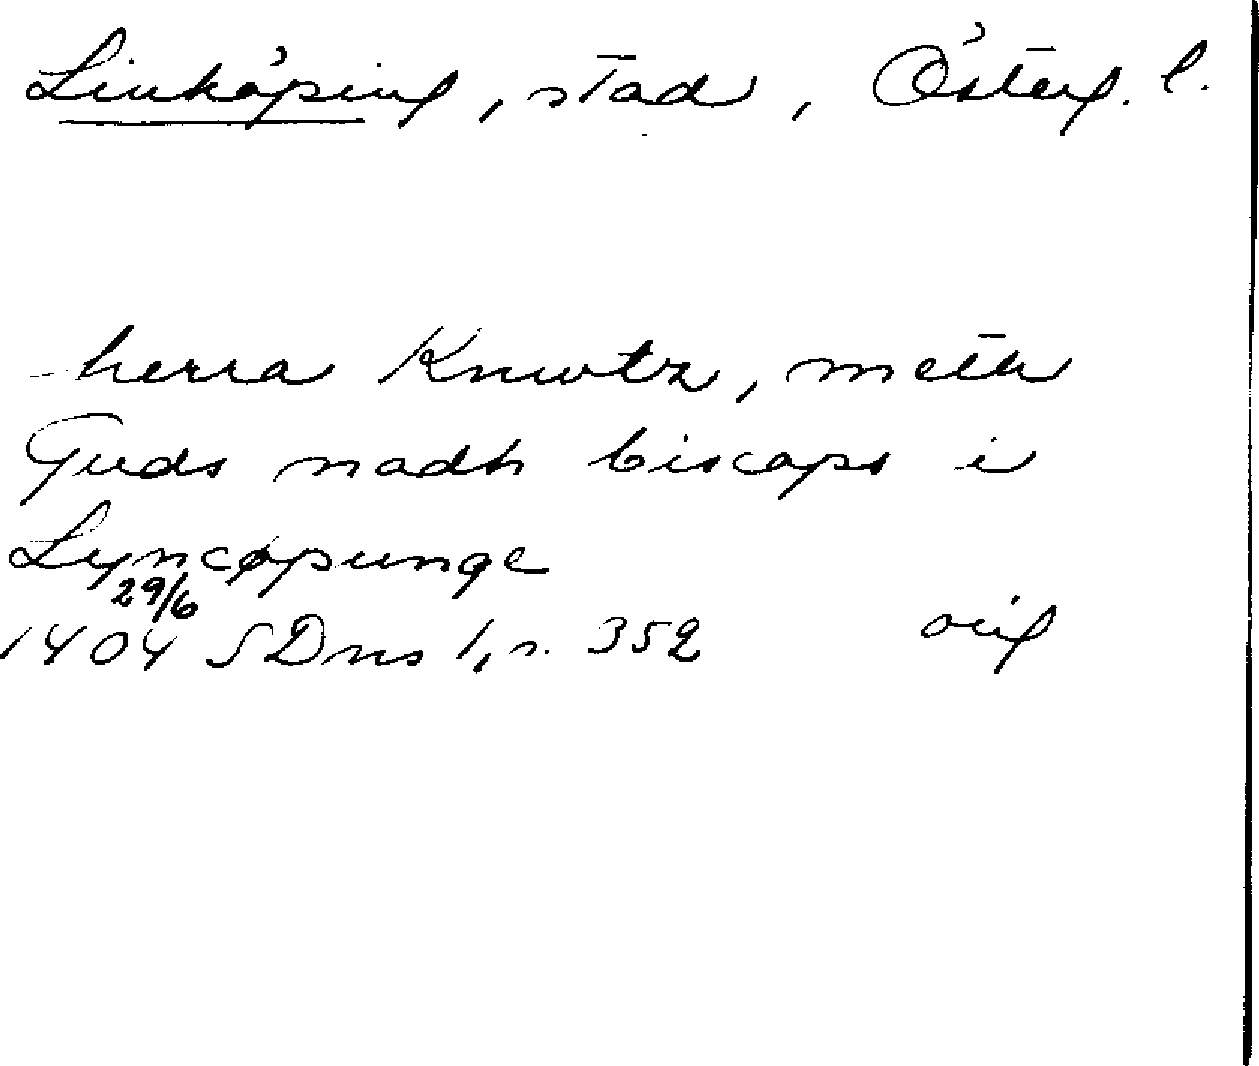 Linköping, stad, Österg. l.
herra Knwtz, meth
Guds nadh biscops i
Lyncøpunge
29/6
1404 SDns 1, s. 352 orig